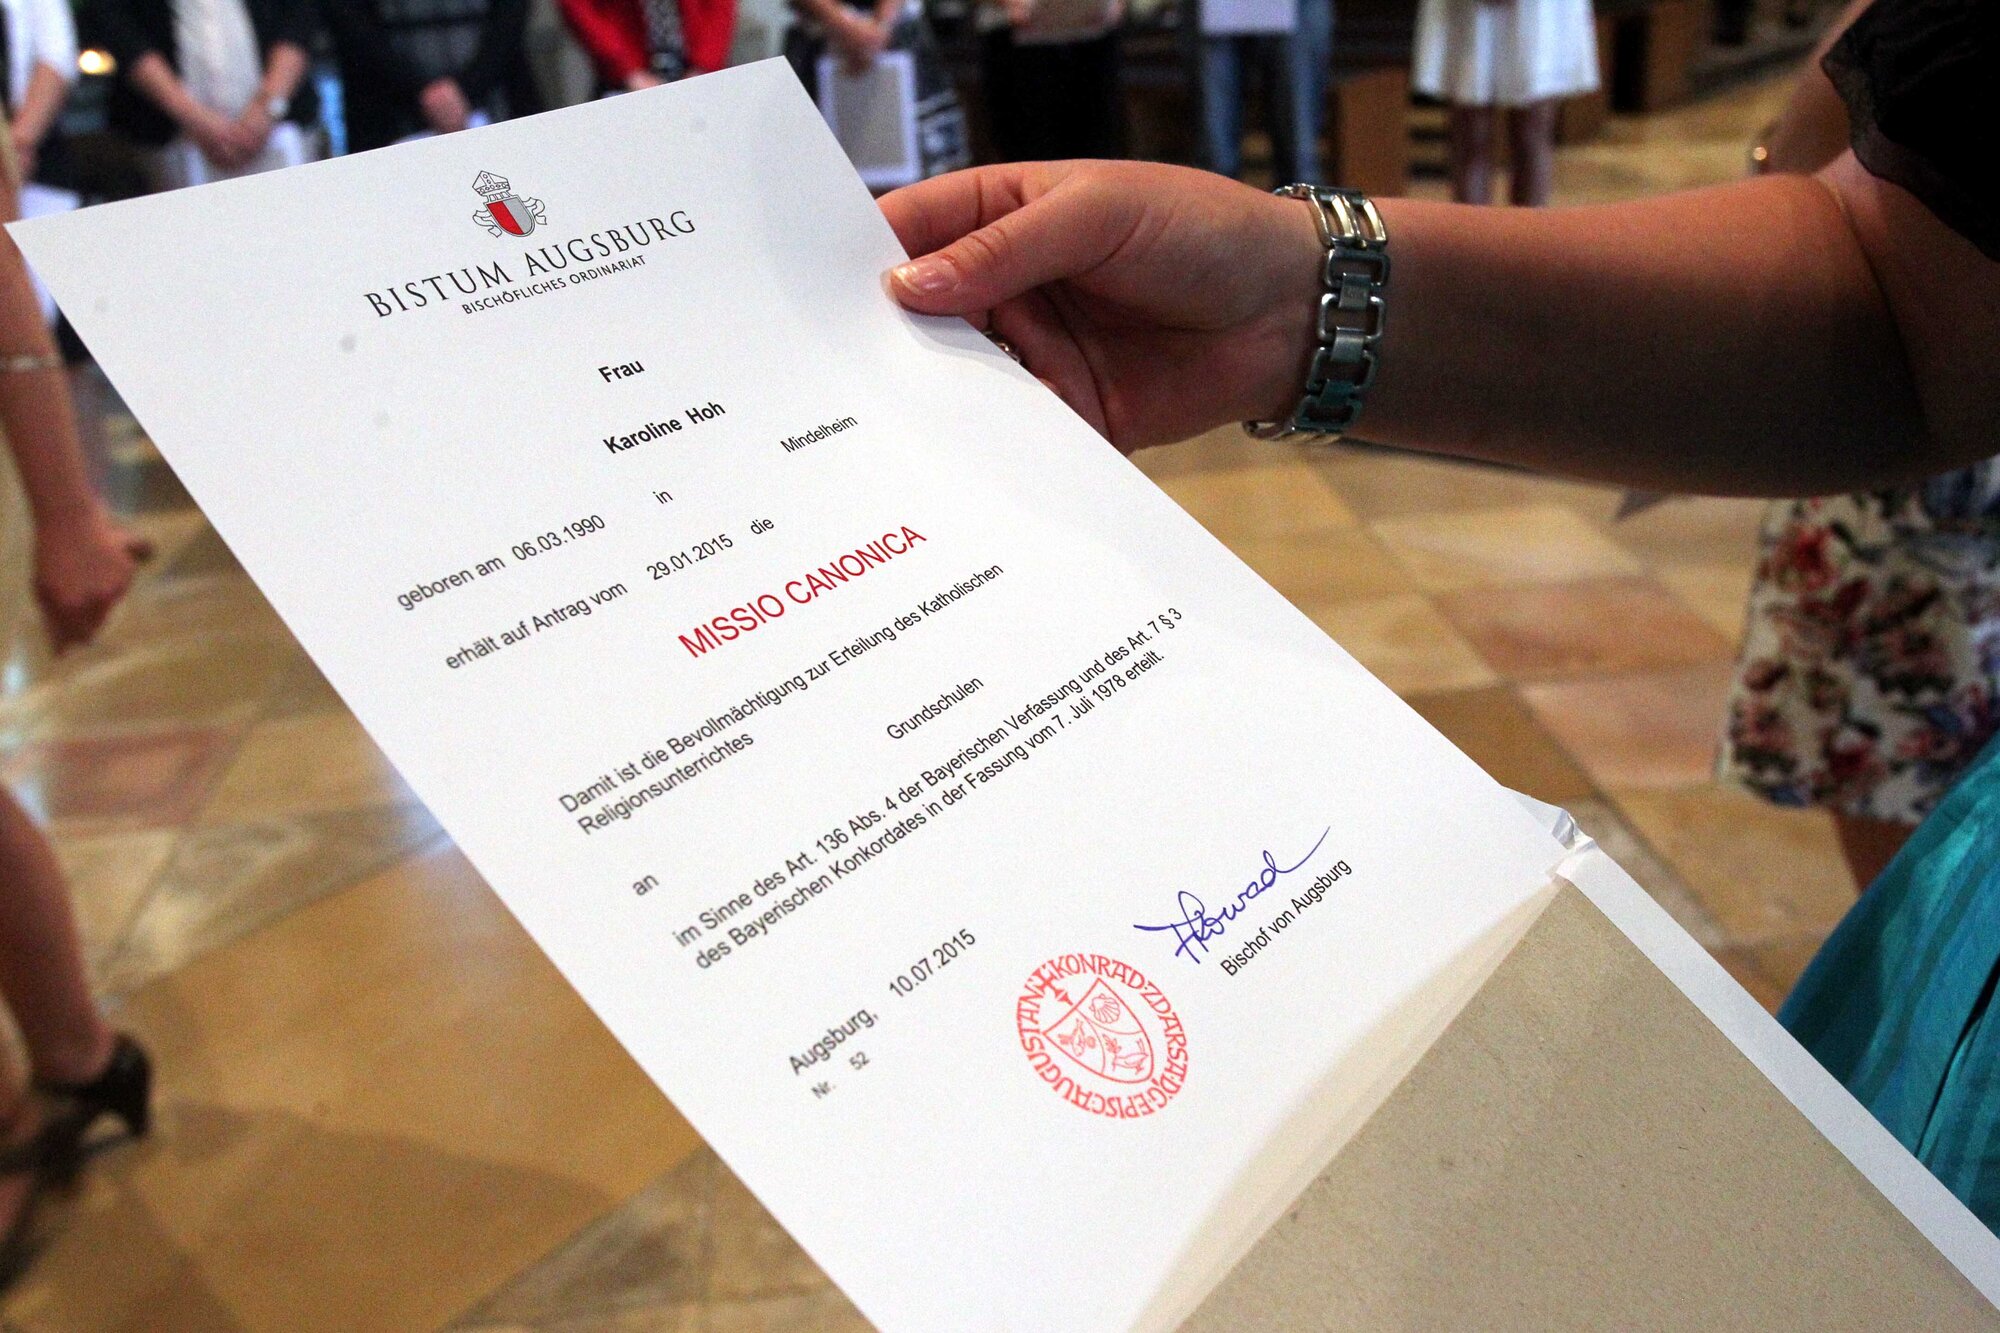 BISTUM AUGSBURG
BISCHÖFLICHES ORDINARIAT
Frau
Karoline Hoh
geboren am 06.03.1990 in Mindelheim
erhält auf Antrag vom 29.01.2015 die
MISSIO CANONICA
Damit ist die Bevollmächtigung zur Erteilung des Katholischen
Religionsunterrichtes
an Grundschulen
im Sinne des Art. 136 Abs. 4 der Bayerischen Verfassung und des Art. 7 § 3
des Bayerischen Konkordates in der Fassung vom 7. Juli 1978 erteilt.
Augsburg, 10.07.2015
Nr. 52
Konrad
Bischof von Augsburg
KONRAD·ZDARSA·
EPISC·AUGUSTAN